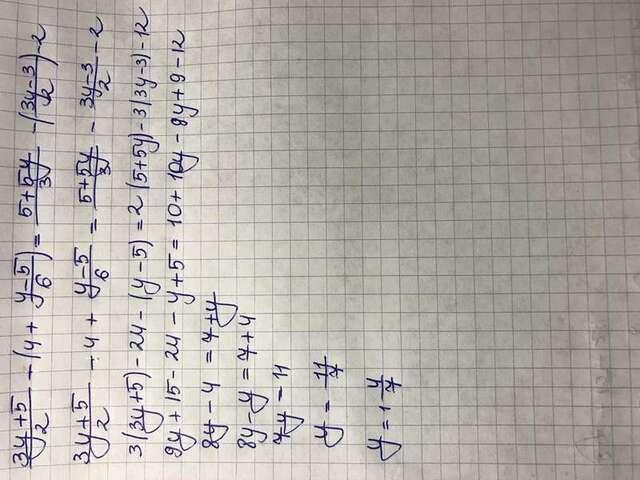 (3y+5)/2 - (4 + (y-5)/6) = (5+5y)/3 - ((3y-3)/2) - 2
(3y+5)/2 - 4 + (y-5)/6 = (5+5y)/3 - (3y-3)/2 - 2
3(3y+5) - 24 - (y-5) = 2(5+5y) - 3(3y-3) - 12
9y + 15 - 24 - y + 5 = 10 + 10y - 9y + 9 - 12
8y - 4 = 7 + y
8y - y = 7 + 4
7y - 11
y = 11/7
y = 1 4/7